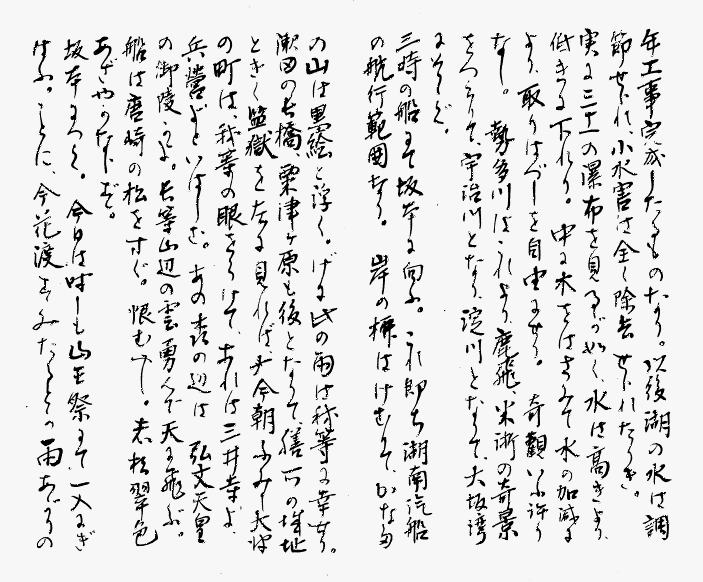 年工事完成したるものなり。以後湖の水は調
節せられ、小水害は全く除去せられたりき。
実に三丈の瀑布を見るが如く、水は高きより
低きに下れり。中に木をはさみて水の加減に
より、取りはづしを自由にせり。奇観いふ許り
なし。勢多川はこれより鹿飛、米術の奇景
をつくりて、宇治川となり、淀川となりて、大坂湾
にそそぐ。
三時の船にて坂本に向ふ。これ即ち湖南汽船
の航行範囲なり。岸の榛はけむりて、かなた
の山は墨絵と浮く。げに此の雨は我等に幸せり。
瀬田の長橋、粟津ヶ原も後となりて膳所の城址
ときく監獄を左に見れば、早今朝ふみし大津
の町は、我等の眼をうけて、あれは三井寺よ、
兵営よといはしむ。あの森の辺は弘文天皇
の御陵こよ。長等山辺の雲勇んで天に飛ぶ。
船は唐崎の松をすぐ。恨むべし。老松翠色
あざやかならぬぞ。
坂本につく。今日は時しも山王祭にて一入にぎ
はふ。ことに、今花渡すみたるとの雨あがりの